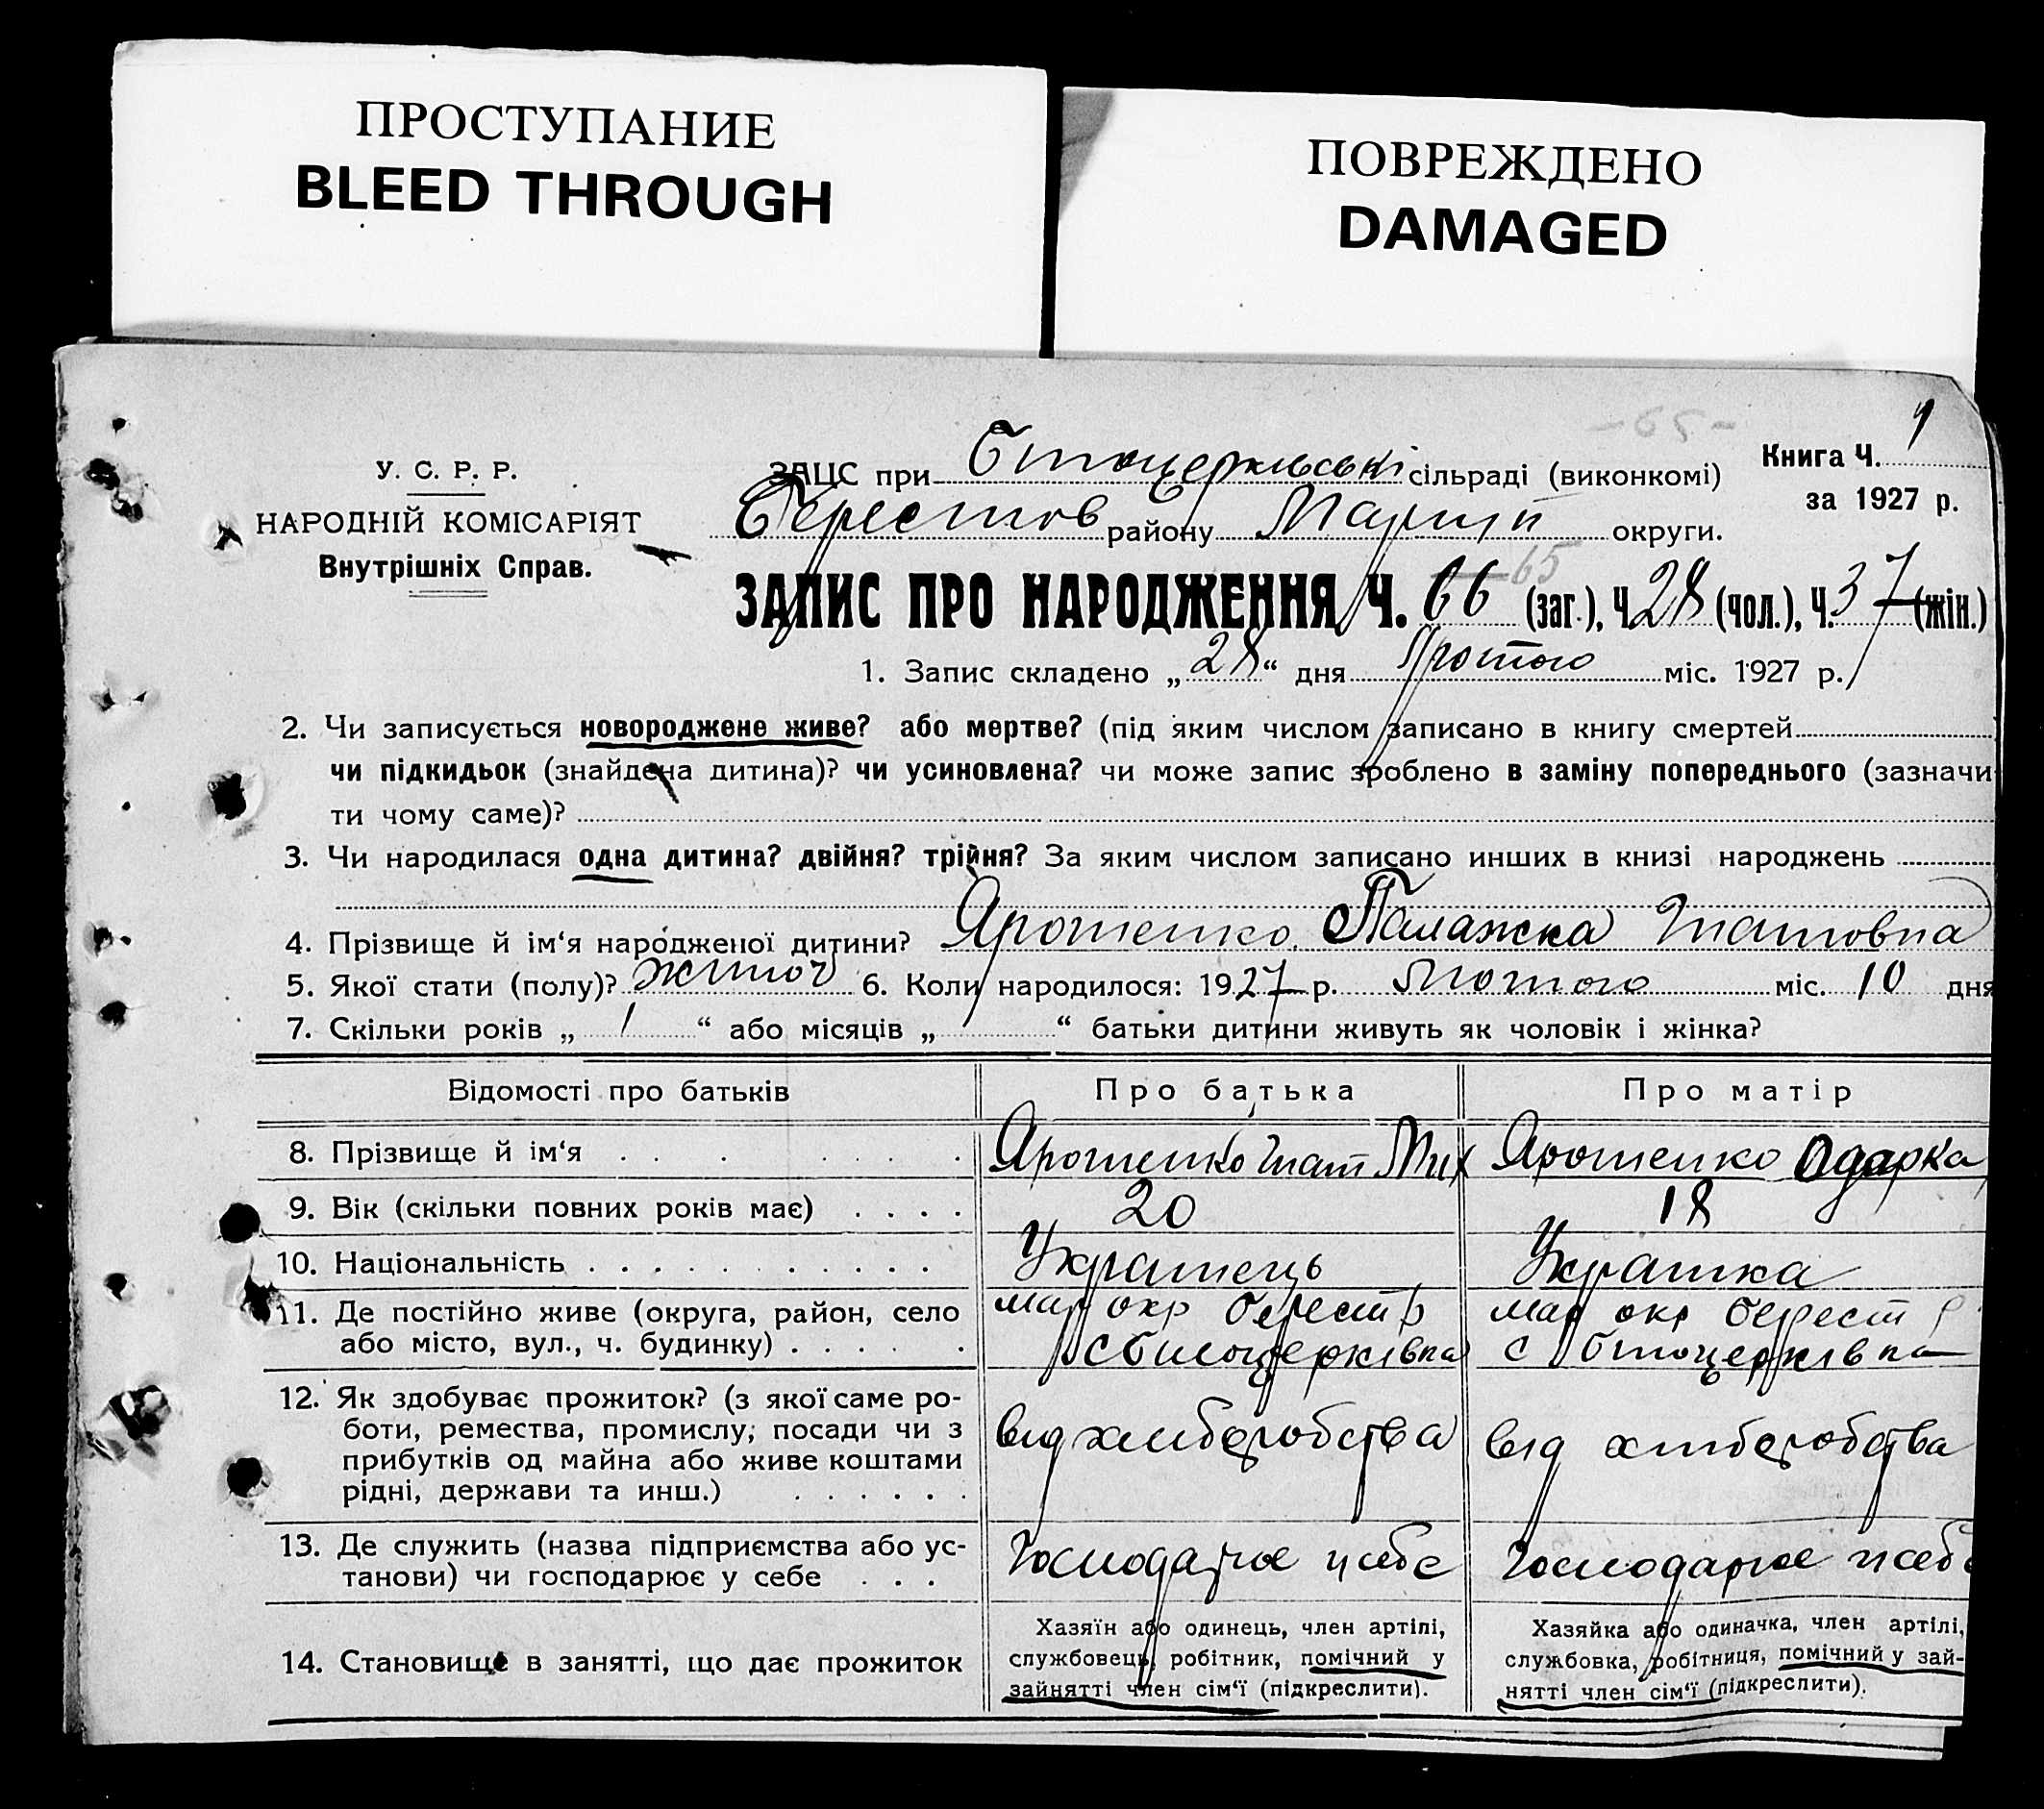 ПРОСТУПАНИЕ
BLEED THROUGH
ПОВРЕЖДЕНО
DAMAGED
У. С. Р. Р.
НАРОДНІЙ КОМІСАРІЯТ
Внутрішніх Справ.
-65-
Книга Ч. 1
за 1927 р.
ЗАЦС при Білоцерківські сільраді (виконкомі)
Берестов району Маріуп округи.
65
ЗАПИС ПРО НАРОДЖЕННЯ Ч. 66 (заг.), Ч. 28 (чол.), Ч. 37 (жін.)
1. Запис складено „28“ дня Лютого міс. 1927 р.
2. Чи записується новороджене живе? або мертве? (під яким числом записано в книгу смертей
чи підкидьок (знайдена дитина)? чи усиновлена? чи може запис зроблено в заміну попереднього (зазначи-
ти чому саме)?
3. Чи народилася одна дитина? двійня? трійня? За яким числом записано инших в книзі народжень
4. Прізвище й ім‘я народженої дитини? Ярошенко Палажка Гнатовна
5. Якої стати (полу)? жіноч 6. Коли народилося: 1927 р. Лютого міс. 10 дня
7. Скільки років „ 1 “ або місяців „ “ батьки дитини живуть як чоловік і жінка?
Відомості про батьків Про батька Про матір
8. Прізвище й ім‘я Ярошенко Гнат Мих Ярошенко Одарка
9. Вік (скільки повних років має) 20 18
10. Національність Украінець Украінка
11. Де постійно живе (округа, район, село мар окр Берест р мар окр Берест р
або місто, вул., ч. будинку) с Білоцерківка с Білоцерківка
12. Як здобуває прожиток? (з якої саме ро-
боти, ремества, промислу, посади чи з від хліборобства від хліборобства
прибутків од майна або живе коштами
рідні, держави та инш.)
13. Де служить (назва підприємства або ус- Господарює у себе Господарює у себе
танови) чи господарює у себе
14. Становище в занятті, що дає прожиток
Хазяїн або одинець, член артілі,
службовець, робітник, помічний у
зайнятті член сім‘ї (підкреслити).
Хазяйка або одиначка, член артілі,
службовка, робітниця, помічний у зай-
нятті член сім‘ї (підкреслити).